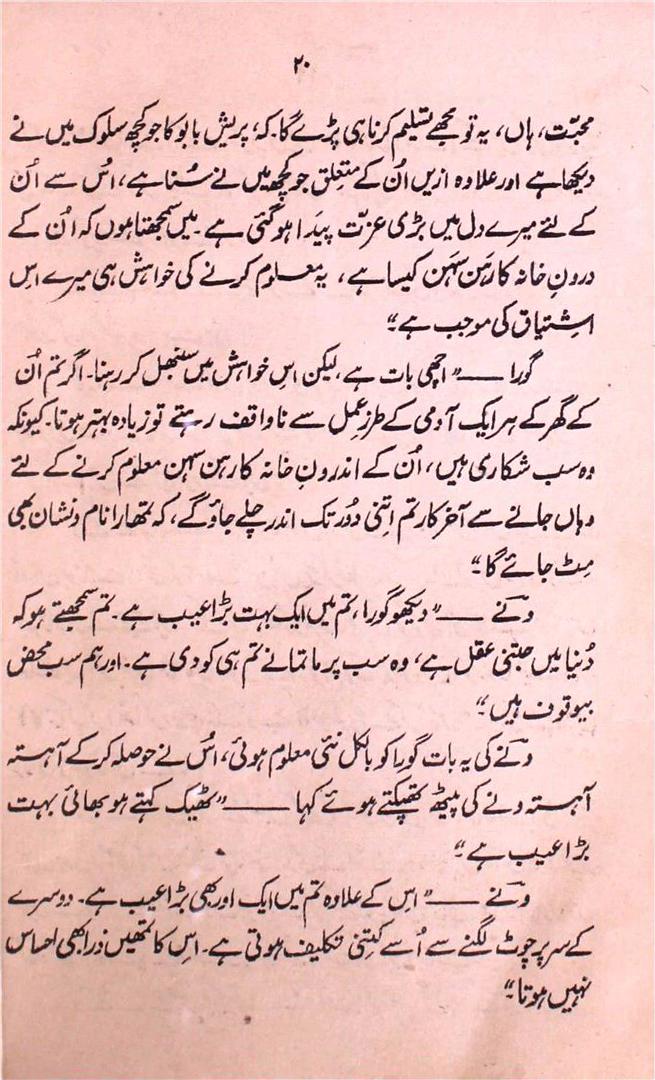 ۲۰
محبّت، ہاں، یہ تو مجھے تسلیم کرنا ہی پڑے گا۔ کہ، پریش بابو کا جو کچھ سلوک میں نے
دیکھا ہے اور علاوہ ازیں اُن کے متعلق جو کچھ میں نے سُنا ہے، اُس سے اُن
کے لئے میرے دل میں بڑی عزّت پیدا ہو گئی ہے۔ میں سمجھتا ہوں کہ اُن کے
درونِ خانہ کا رہن سہن کیسا ہے، یہ معلوم کرنے کی خواہش ہی میرے اِس
اشتیاق کی موجب ہے“
گورا ——”اچھی بات ہے، لیکن اس خواہش میں سنبھل کر رہنا۔ اگر تم اُن
کے گھر کے ہر ایک آدمی کے طرزِ عمل سے ناواقف رہتے تو زیادہ بہتر ہوتا۔ کیونکہ
وہ سب شکاری ہیں، اُن کے اندرونِ خانہ کا رہن سہن معلوم کرنے کے لئے
وہاں جانے سے آخر کار تم اِتنی دُور تک اندر چلے جاؤ گے، کہ تمھارا نام و نشان بھی
مِٹ جائے گا“
ونے ——”دیکھو گورا، تم میں ایک بہت بڑا عیب ہے۔ تم سمجھتے ہو کہ
دُنیا میں جتنی عقل ہے، وہ سب پرماتمانے تم ہی کو دی ہے۔ اور ہم سب محض
بیوقوف ہیں“
ونے کی یہ بات گورا کو بالکل نئی معلوم ہوئی، اُس نے حوصلہ کر کے آہستہ
آہستہ ونے کی پیٹھ تھپکتے ہوئے کہا ——”ٹھیک کہتے ہو بھائی بہت
بڑا عیب ہے“
ونے ——”اس کے علاوہ تم میں ایک اور بھی بڑا عیب ہے۔ دوسرے
کے سر پر چوٹ لگنے سے اُسے کِتنی تکلیف ہوتی ہے۔ اس کا تمھیں ذرا بھی احساس
نہیں ہوتا“